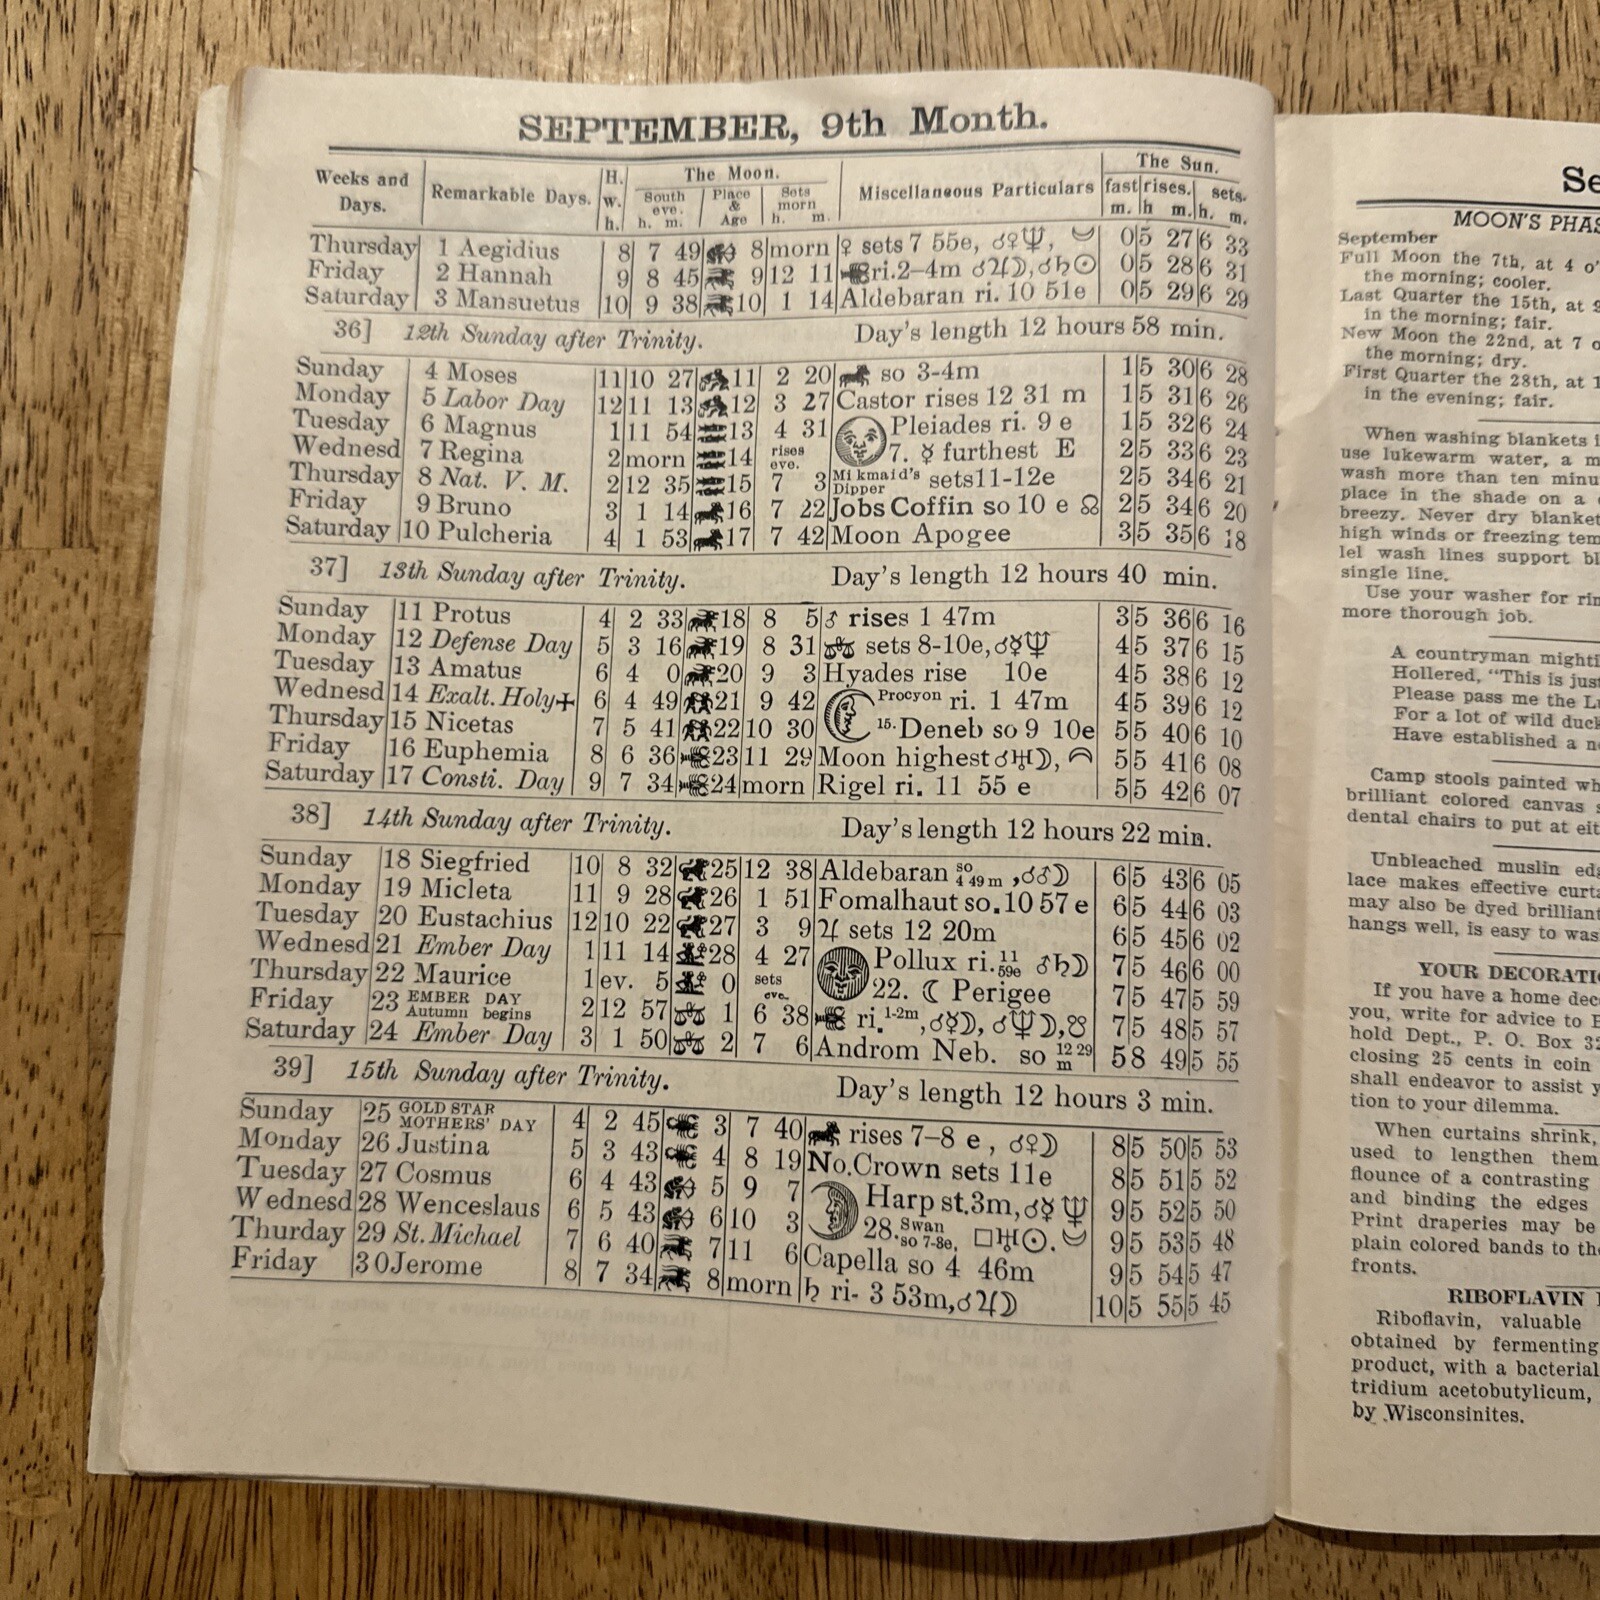 SEPTEMBER, 9th Month.
Weeks and Days. Remarkable Days. H. W. h. The Moon. South eve. h. m. Place & Age Sets morn h. m. Miscellaneous Particulars The Sun. fast m. rises. h m. sets. h. m.
Thursday 1 Aegidius 8 7 49 8 morn ♀ sets 7 55e, ☌♀♆, 0 5 27 6 33
Friday 2 Hannah 9 8 45 9 12 11 ri. 2-4m ☌♃☽, ☌♄☉ 0 5 28 6 31
Saturday 3 Mansuetus 10 9 38 10 1 14 Aldebaran ri. 10 51e 0 5 29 6 29
36] 12th Sunday after Trinity. Day's length 12 hours 58 min.
Sunday 4 Moses 11 10 27 11 2 20 so 3-4m 1 5 30 6 28
Monday 5 Labor Day 12 11 13 12 3 27 Castor rises 12 31 m 1 5 31 6 26
Tuesday 6 Magnus 1 11 54 13 4 31 Pleiades ri. 9 e 1 5 32 6 24
Wednesd 7 Regina 2 morn 14 rises eve. 7. ☿ furthest E 2 5 33 6 23
Thursday 8 Nat. V. M. 2 12 35 15 7 3 Milkmaid's Dipper sets 11-12e 2 5 34 6 21
Friday 9 Bruno 3 1 14 16 7 22 Jobs Coffin so 10 e ☊ 2 5 34 6 20
Saturday 10 Pulcheria 4 1 53 17 7 42 Moon Apogee 3 5 35 6 18
37] 13th Sunday after Trinity. Day's length 12 hours 40 min.
Sunday 11 Protus 4 2 33 18 8 5 ♂ rises 1 47m 3 5 36 6 16
Monday 12 Defense Day 5 3 16 19 8 31 sets 8-10e, ☌☿♆ 4 5 37 6 15
Tuesday 13 Amatus 6 4 0 20 9 3 Hyades rise 10e 4 5 38 6 12
Wednesd 14 Exalt. Holy+ 6 4 49 21 9 42 Procyon ri. 1 47m 4 5 39 6 12
Thursday 15 Nicetas 7 5 41 22 10 30 15. Deneb so 9 10e 5 5 40 6 10
Friday 16 Euphemia 8 6 36 23 11 29 Moon highest ☌♅☽, 5 5 41 6 08
Saturday 17 Consti. Day 9 7 34 24 morn Rigel ri. 11 55 e 5 5 42 6 07
38] 14th Sunday after Trinity. Day's length 12 hours 22 min.
Sunday 18 Siegfried 10 8 32 25 12 38 Aldebaran so 4 49 m, ☌♂☽ 6 5 43 6 05
Monday 19 Micleta 11 9 28 26 1 51 Fomalhaut so. 10 57 e 6 5 44 6 03
Tuesday 20 Eustachius 12 10 22 27 3 9 ♃ sets 12 20m 6 5 45 6 02
Wednesd 21 Ember Day 1 11 14 28 4 27 Pollux ri. 11 59e ☌♄☽ 7 5 46 6 00
Thursday 22 Maurice 1 ev. 5 0 sets eve. 22. ☾ Perigee 7 5 47 5 59
Friday 23 EMBER DAY Autumn begins 2 12 57 1 6 38 ri. 1-2m, ☌☿☽, ☌♆☽, ☋ 7 5 48 5 57
Saturday 24 Ember Day 3 1 50 2 7 6 Androm Neb. so 12 29 m 5 8 49 5 55
39] 15th Sunday after Trinity. Day's length 12 hours 3 min.
Sunday 25 GOLD STAR MOTHERS' DAY 4 2 45 3 7 40 rises 7-8 e, ☌♀☽ 8 5 50 5 53
Monday 26 Justina 5 3 43 4 8 19 No. Crown sets 11e 8 5 51 5 52
Tuesday 27 Cosmus 6 4 43 5 9 7 Harp st. 3m, ☌☿♆ 9 5 52 5 50
Wednesd 28 Wenceslaus 6 5 43 6 10 3 28. Swan so 7-8e. □♅☉. 9 5 53 5 48
Thurday 29 St. Michael 7 6 40 7 11 6 Capella so 4 46m 9 5 54 5 47
Friday 30 Jerome 8 7 34 8 morn ♄ ri- 3 53m, ☌♃☽ 10 5 55 5 45
Se
MOON'S PHAS
September
Full Moon the 7th, at 4 o'
the morning; cooler.
Last Quarter the 15th, at
in the morning; fair.
New Moon the 22nd, at 7 o
the morning; dry.
First Quarter the 28th, at 1
in the evening; fair.
When washing blankets
use lukewarm water, a m
wash more than ten minu
place in the shade on a
breezy. Never dry blanket
high winds or freezing tem
lel wash lines support bl
single line.
Use your washer for rin
more thorough job.
A countryman mighti
Hollered, "This is jus
Please pass me the Lu
For a lot of wild duck
Have established a n
Camp stools painted wh
brilliant colored canvas
dental chairs to put at eit
Unbleached muslin edg
lace makes effective curta
may also be dyed brilliant
hangs well, is easy to was
YOUR DECORATI
If you have a home dec
you, write for advice to
hold Dept., P. O. Box 32
closing 25 cents in coin
shall endeavor to assist y
tion to your dilemma.
When curtains shrink,
used to lengthen them
flounce of a contrasting
and binding the edges
Print draperies may be
plain colored bands to the
fronts.
RIBOFLAVIN
Riboflavin, valuable
obtained by fermenting
product, with a bacterial
tridium acetobutylicum,
by Wisconsinites.